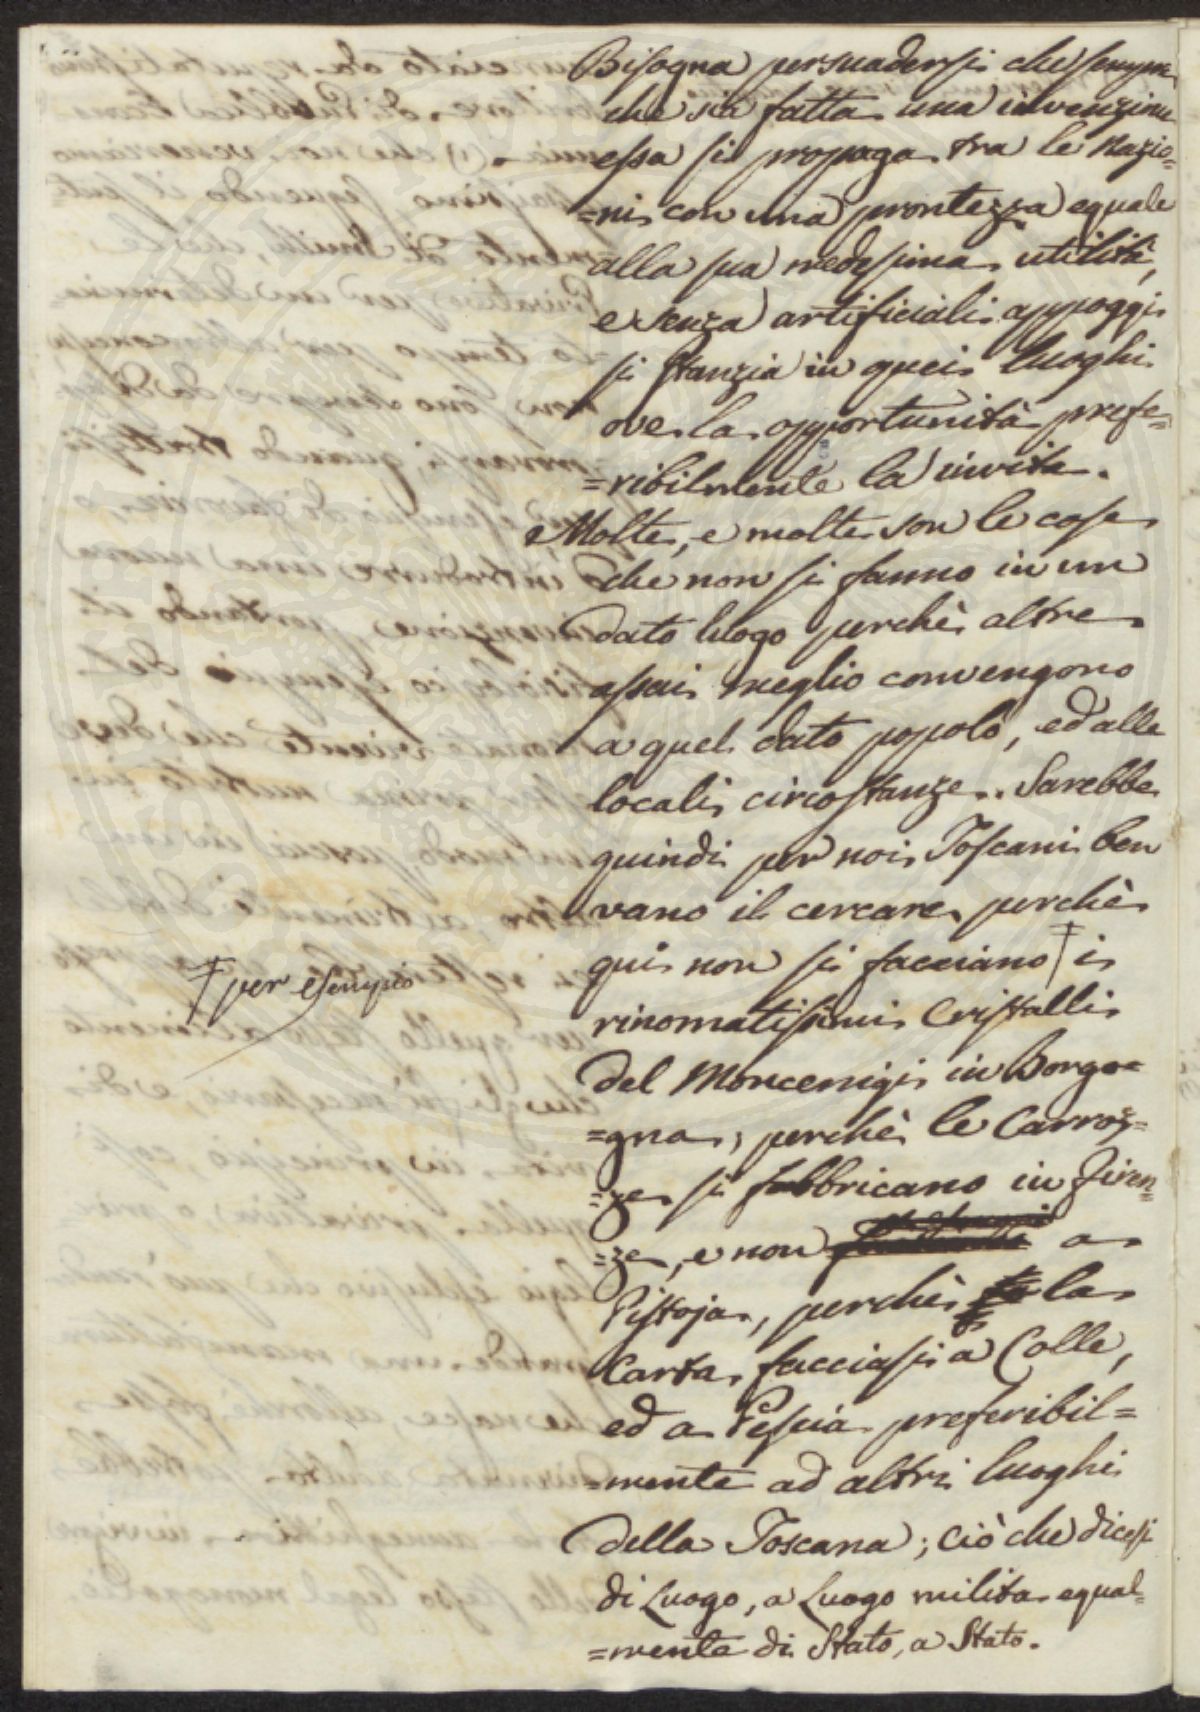 Bisogna persuadersi che sempre
che sia fatta una invenzione
essa si propaga tra le Nazio=
=ni con una prontezza eguale
alla sua medesima utilità,
e senza artificiali appoggi
si stanzia in quei luoghi
ove la opportunità prefe=
=ribilmente la invita.
Molte, e molte son le cose
che non si fanno in un
dato luogo perchè altre
assai meglio convengono
a quel dato popolo, ed alle
locali circostanze. Sarebbe
quindi per noi Toscani ben
vano il cercare perchè
qui non si facciano ‡ i
‡ per esempio
rinomatissimi Cristalli
del Moncenigi in Borgo=
=gna, perchè le Carroz=
=ze si fabbricano in Firen=
=ze, e non a
Pistoja, perchè la
Carta facciasi a Colle,
ed a Pescia preferibil=
=mente ad altri luoghi
della Toscana; ciò che dicesi
di Luogo, a Luogo milita egual=
=mente di Stato, a Stato.